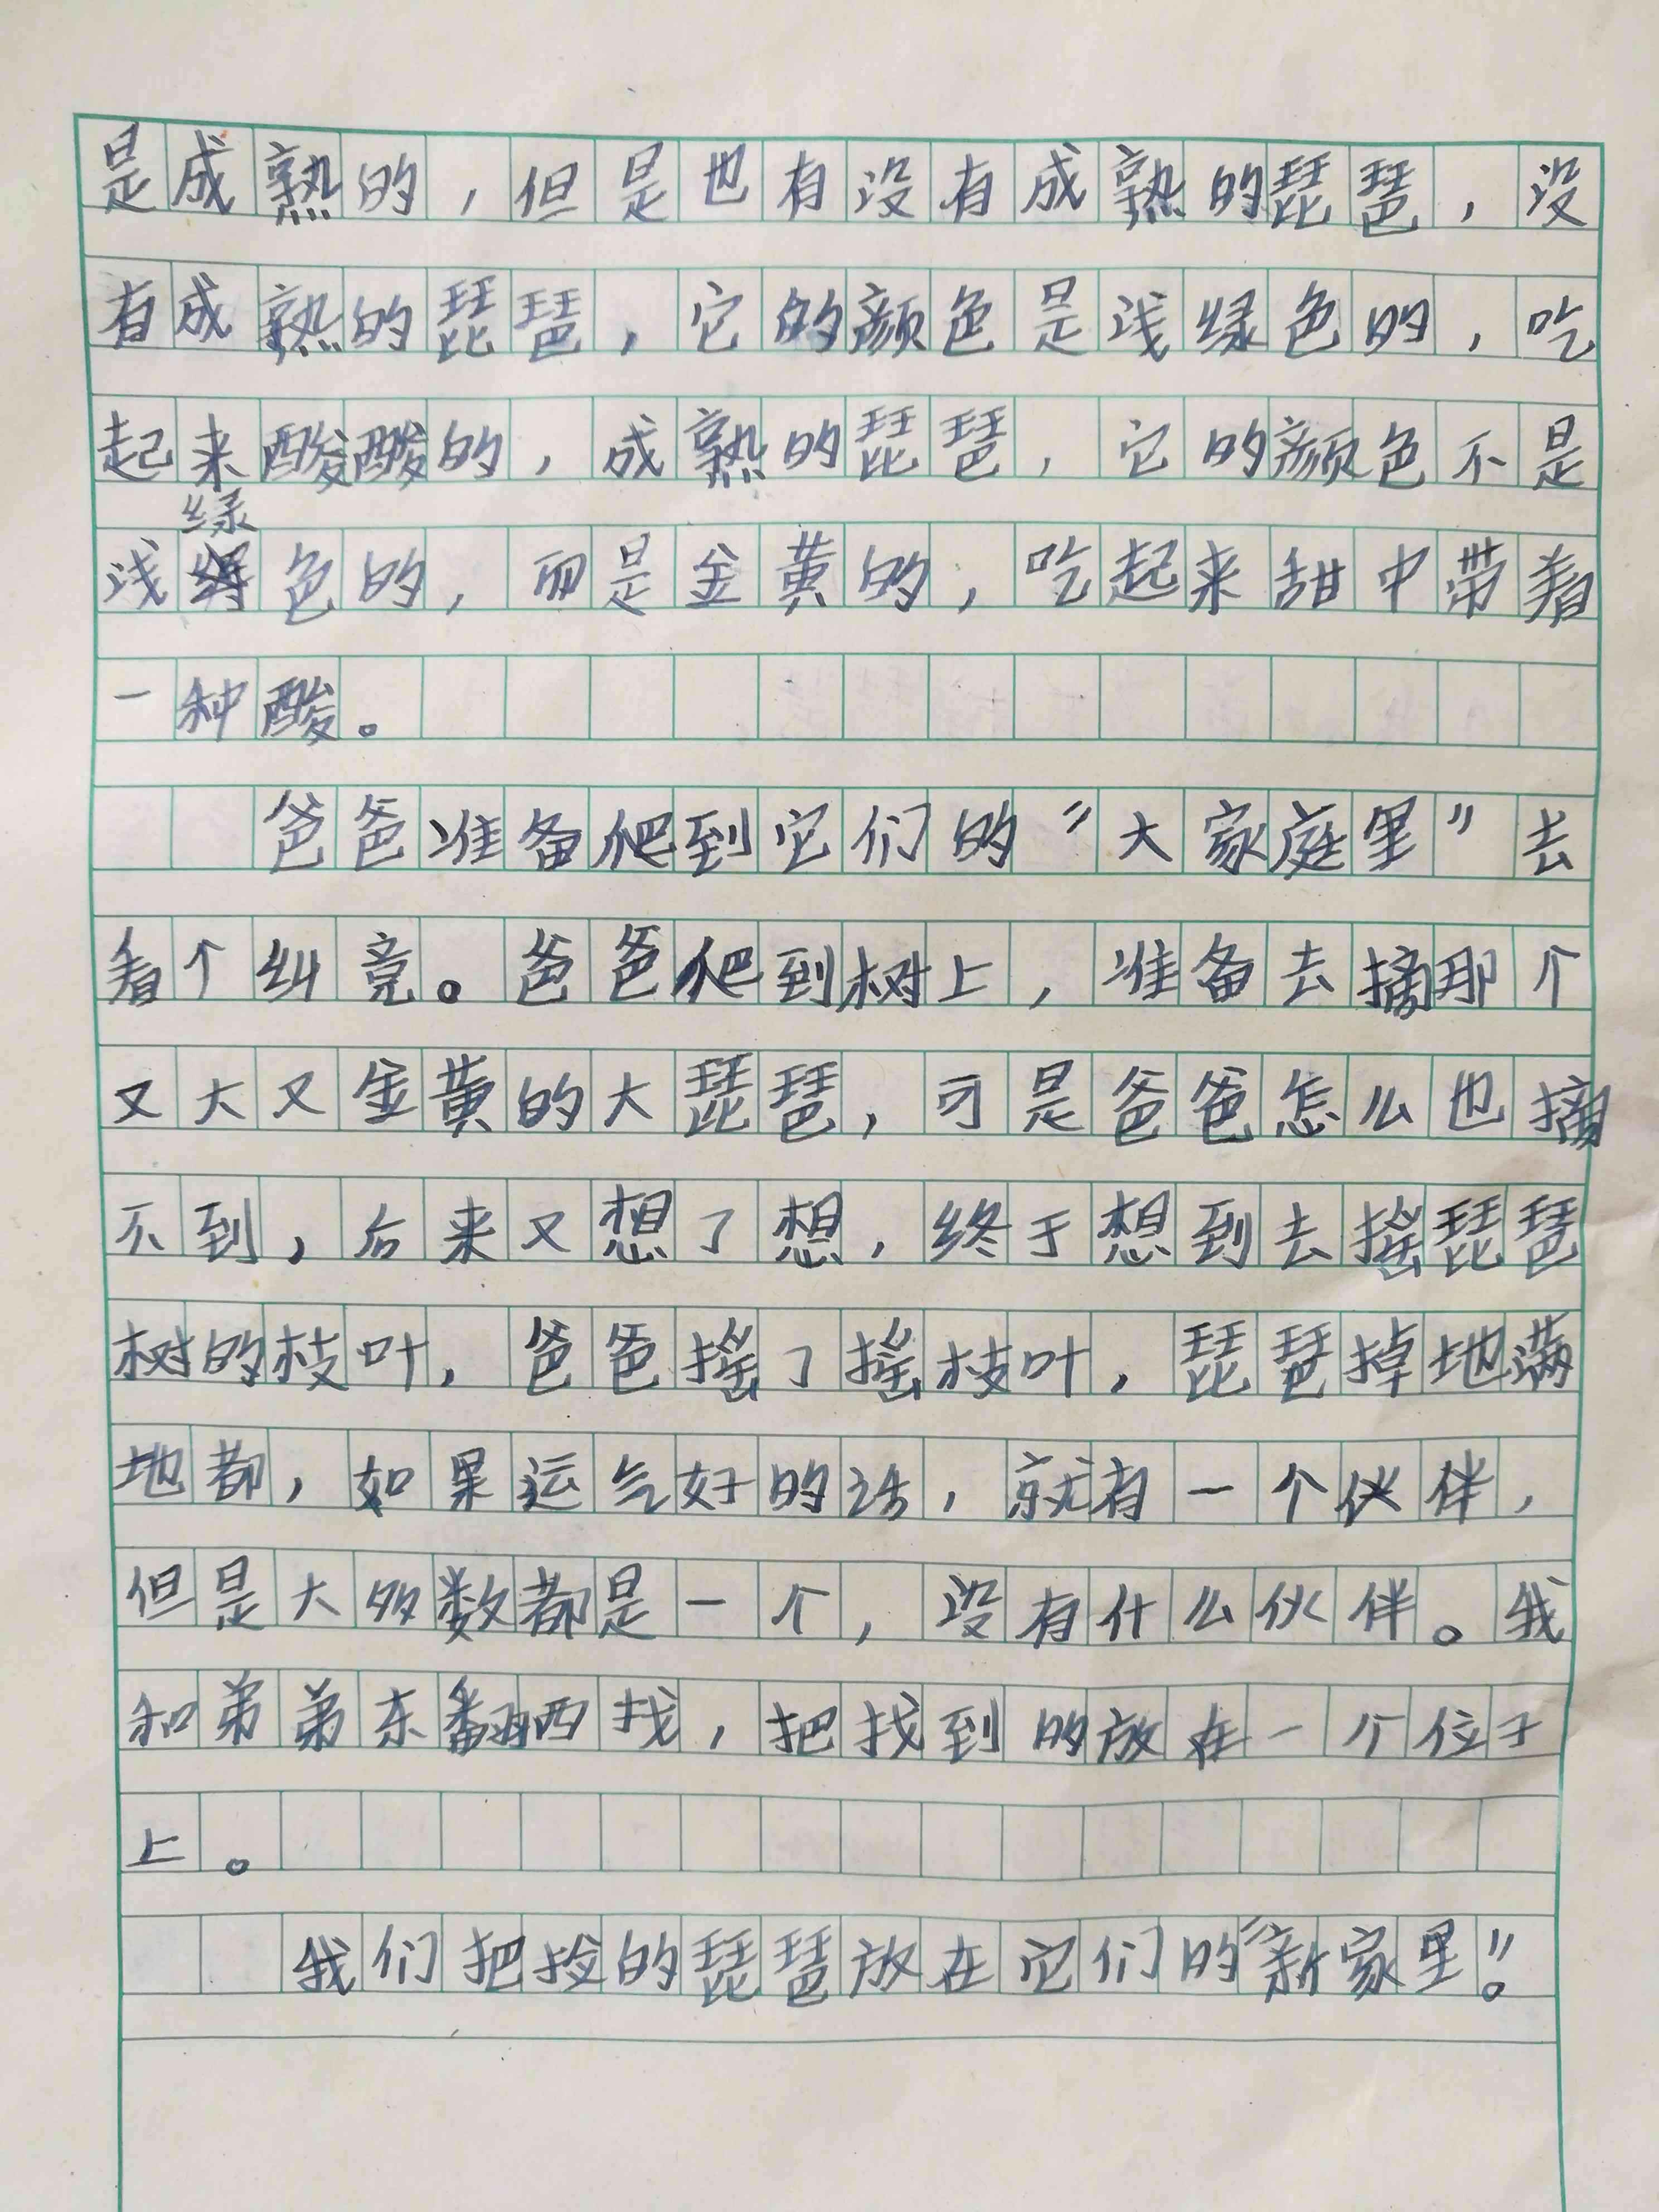 是成熟的，但是也有没有成熟的琵琶，没
有成熟的琵琶，它的颜色是浅绿色的，吃
起来酸酸的，成熟的琵琶，它的颜色不是
浅绿色的，而是金黄的，吃起来甜中带着
一种酸。
爸爸准备爬到它们的“大家庭里”去
看个纠竟。爸爸爬到树上，准备去摘那个
又大又金黄的大琵琶，可是爸爸怎么也摘
不到，后来又想了想，终于想到去摇琵琶
树的枝叶，爸爸摇了摇枝叶，琵琶掉地满
地都，如果运气好的话，就有一个伙伴，
但是大多数都是一个，没有什么伙伴。我
和弟弟东翻西找，把找到的放在一个位于
上。
我们把捡的琵琶放在它们的“新家里”。